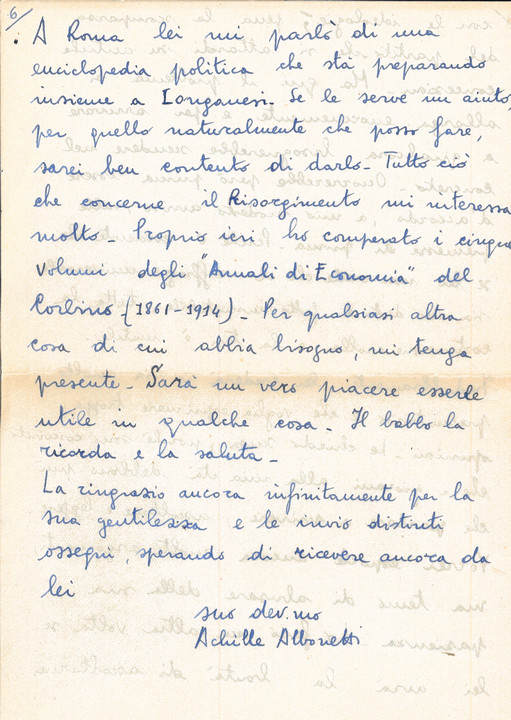 6/
A Roma lei mi parlò di una
enciclopedia politica che sta preparando
insieme a Longanesi. Se le serve un aiuto,
per quello naturalmente che posso fare,
sarei ben contento di darlo - Tutto ciò
che concerne il Risorgimento mi interessa
molto - Proprio ieri ho comperato i cinque
volumi degli "Annali di Economia" del
Corbino - (1861-1914) - Per qualsiasi altra
cosa di cui abbia bisogno, mi tenga
presente - Sarà un vero piacere esserle
utile in qualche cosa - Il babbo la
ricorda e la saluta -
La ringrazio ancora infinitamente per la
sua gentilezza e le invio distinti
ossequi, sperando di ricevere ancora da
lei
suo dev.mo
Achille Albonetti